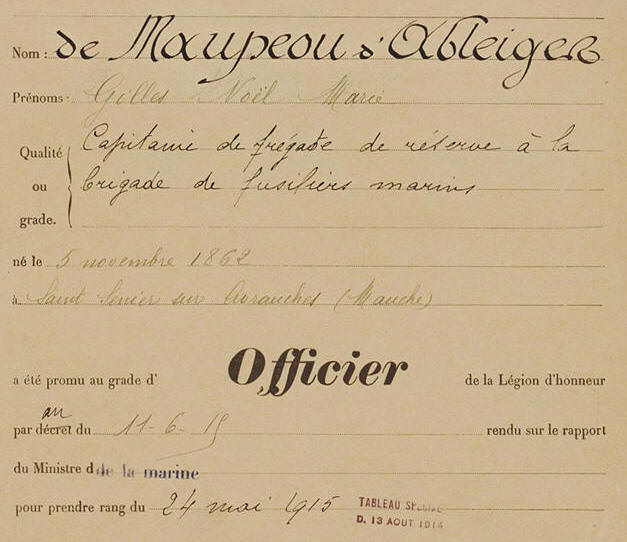 Nom : de Maupeou d'Ableiges
Prénoms : Gilles Noël Marie
Qualité ou grade. Capitaine de frégate de réserve à la
brigade de fusiliers marins
né le 5 novembre 1862
à Saint Senier sur Avranches (Manche)
a été promu au grade d' Officier de la Légion d'honneur
an
par décret du 11-6-15 rendu sur le rapport
du Ministre d de la marine
pour prendre rang du 24 mai 1915
TABLEAU SPECIAL
D. 13 AOUT 1914